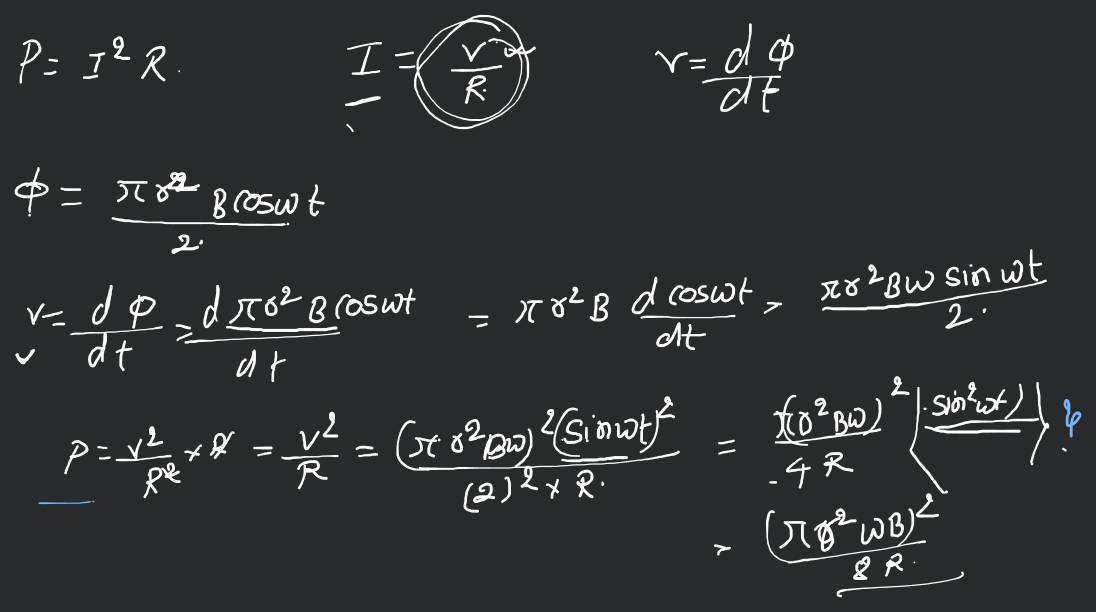 P = I² R. I = V/R V = dφ/dt
φ = πr² B cosωt / 2.
V = dφ/dt = d πr² B cosωt / dt = πr² B d cosωt / dt > πr² Bω sin ωt / 2.
P = V²/R² × R = V²/R = (πr² Bω)² (Sinωt)² / (2)² × R. = (πr² Bω)² / 4R ⟨sin²ωt⟩. ?
> (πr² ωB)² / 8 R.